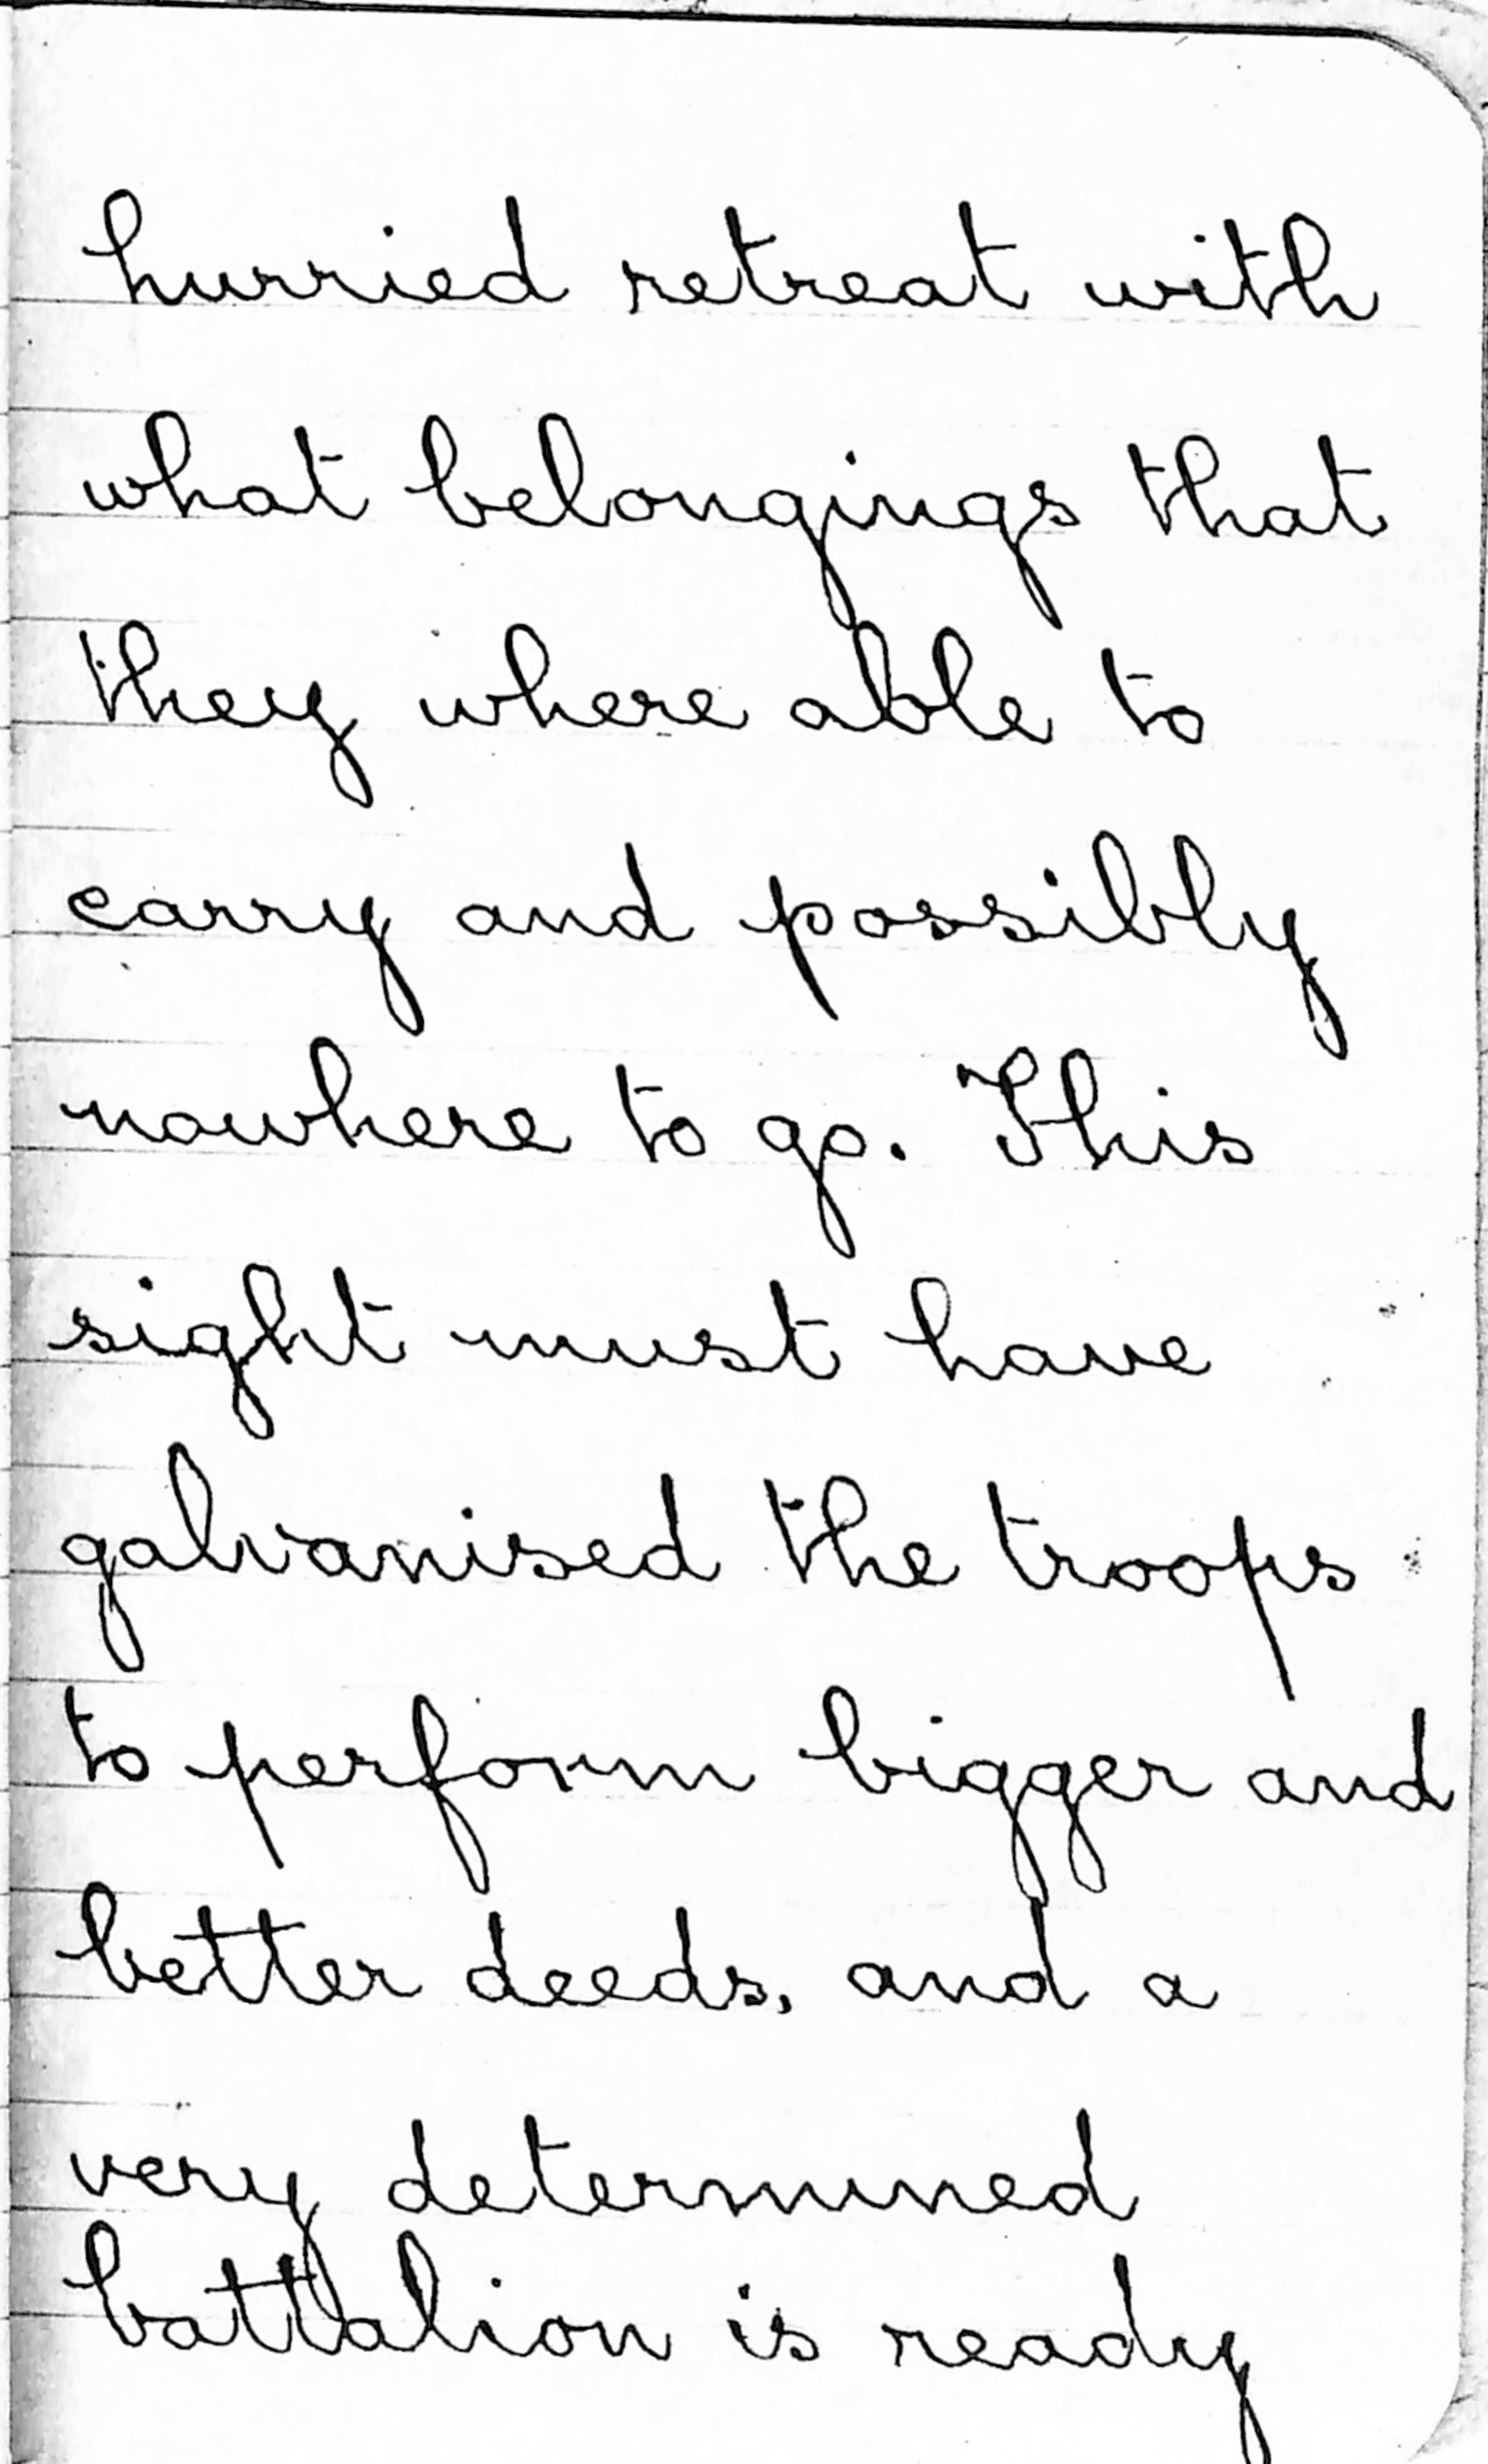 hurried retreat with
what belongings that
they where able to
carry and possibly
nowhere to go. This
sight must have
galvanised the troops
to perform bigger and
better deeds, and a
very determined
battalion is ready